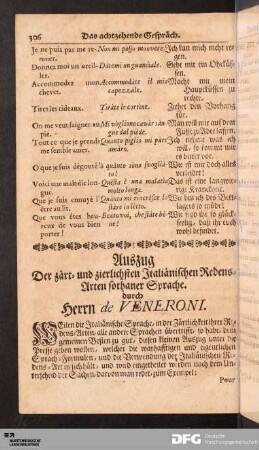 306 Das achtzehende Gespräch.
Je ne puis pas me re- Non mi posso movere. Ich kan mich nicht re-
gen.
Donnez moi un oreil- Datemi un guanciale. Gebt mir ein
ler.
Accommodez mon Accommodate il mio Macht mir mein
chevet. capezzale.
rechte.
Tirez les rideaux. Tirate le cortine. Ziehet den Vorhang
für.
On me veut saigner au Mi vogliono cavar san- Man will mir auf dem
gue dal piede. Fusse zur Ader lassen.
Tout ce que je prends Quanto piglio mi pare Ich
me semble amer. amaro.
es bitter vor.
O que je suis dégouté! O quanto sono svoglia-
to! alles
verleidet!
Voici une maladie lon- Questa è una malattia Das ist eine langwie-
gue. molto lunga. rige Kranckheit.
Que je suis ennuyé l'
Que vous êtes heu- Beato voi, che state be-
reux de vous bien ne!
porter! wohl befindet.
Auszug
Der zärt- und zierlichsten Italiänischen Redens-
Arten sothaner Sprache.
durch
Herrn de VENERONI.
Weilen die Italiänische Sprache, in der Zärtlichkeit ihrer Re-
dens-Arten, alle andere Sprachen übertrifft, so habe, dem
gemeinen Besten zu gut, diesen kleinen Auszug unter die
Presse geben wollen, welcher die wahrhafftigen und eigentlichen
Sprach-Formulen, und die Verwendung der Italiänischen Re-
dens-Art in sich hält, und wird eingetheilet werden nach dem Un-
terscheid der Sachen, darvon man redet, zum Exempel:
DFG Deutsche
Forschungsgemeinschaft